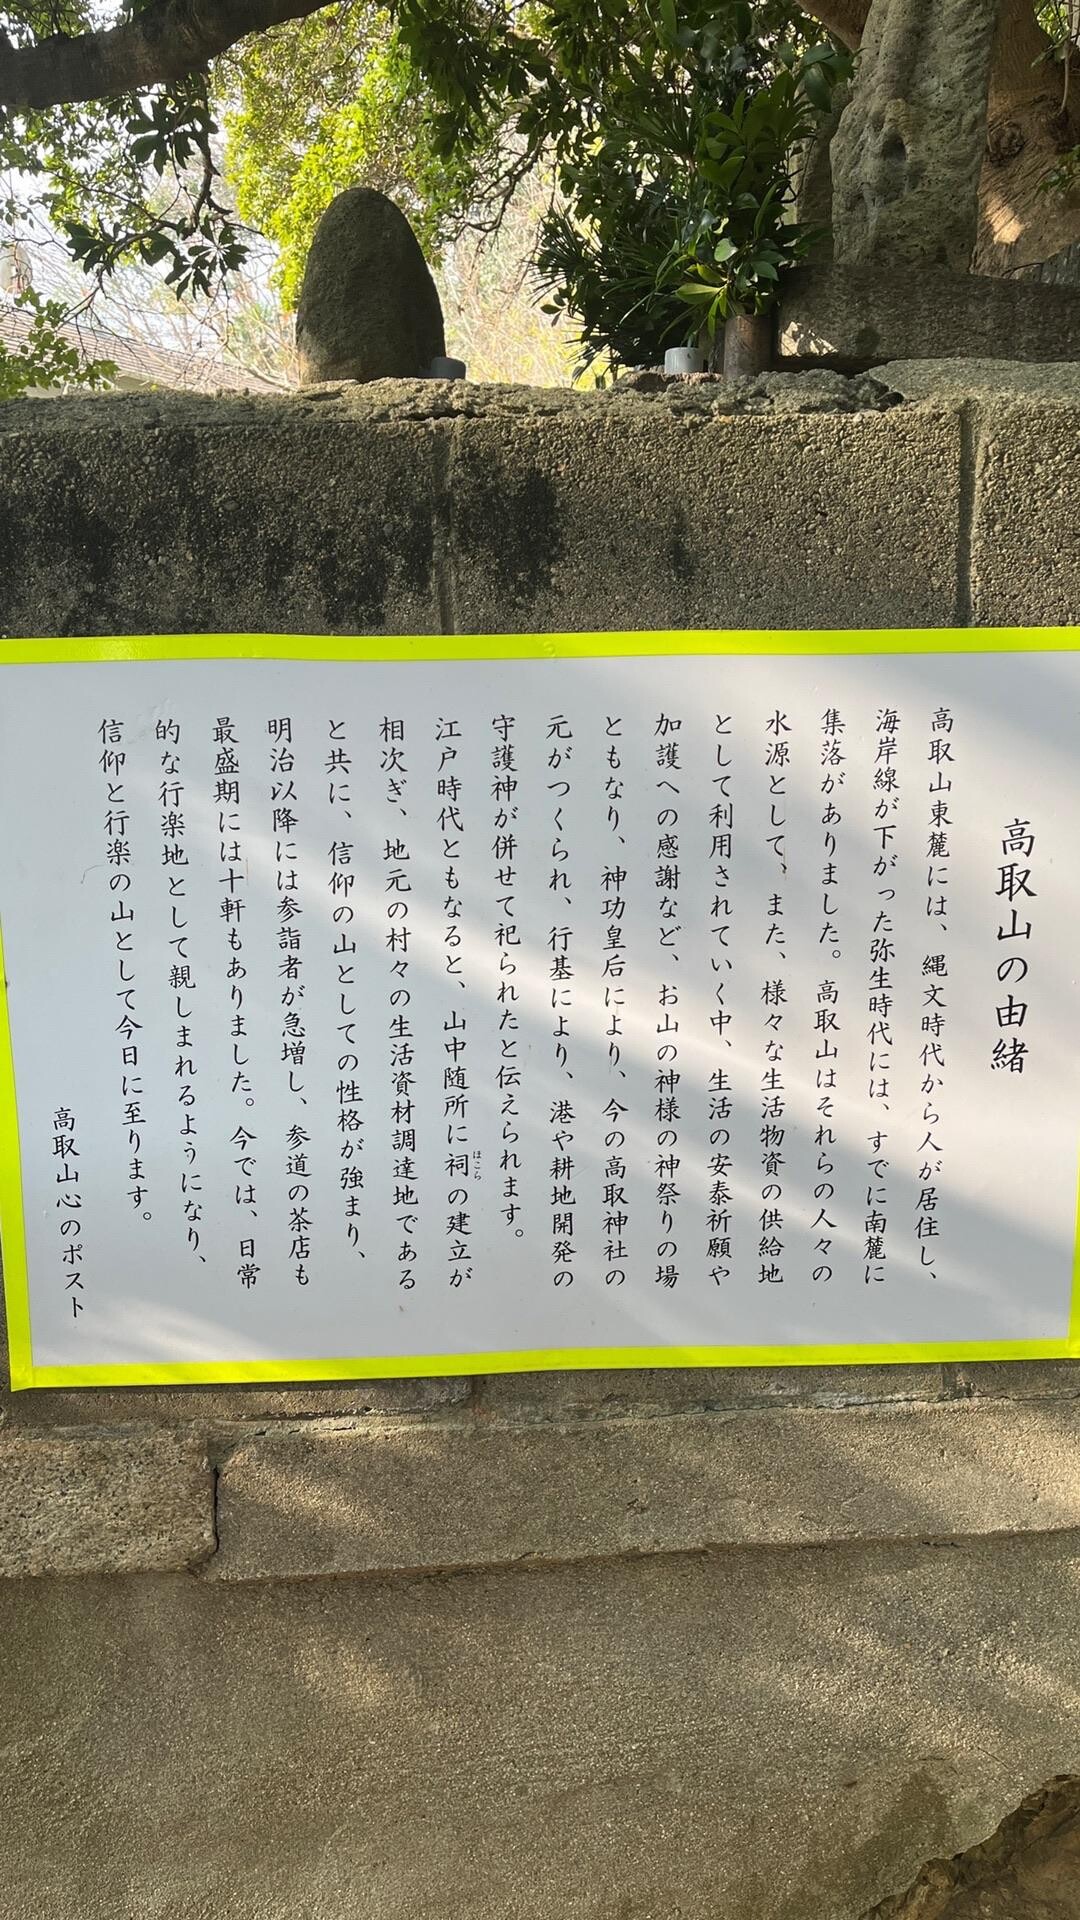 高取山の由緒
高取山東麓には、縄文時代から人が居住し、
海岸線が下がった弥生時代には、すでに南麓に
集落がありました。高取山はそれらの人々の
水源として、また、様々な生活物資の供給地
として利用されていく中、生活の安泰祈願や
加護への感謝など、お山の神様の神祭りの場
ともなり、神功皇后により、今の高取神社の
元がつくられ、行基により、港や耕地開発の
守護神が併せて祀られたと伝えられます。
江戸時代ともなると、山中随所に祠の建立が
ほこら
相次ぎ、地元の村々の生活資材調達地である
と共に、信仰の山としての性格が強まり、
明治以降には参詣者が急増し、参道の茶店も
最盛期には十軒もありました。今では、日常
的な行楽地として親しまれるようになり、
信仰と行楽の山として今日に至ります。
高取山心のポスト